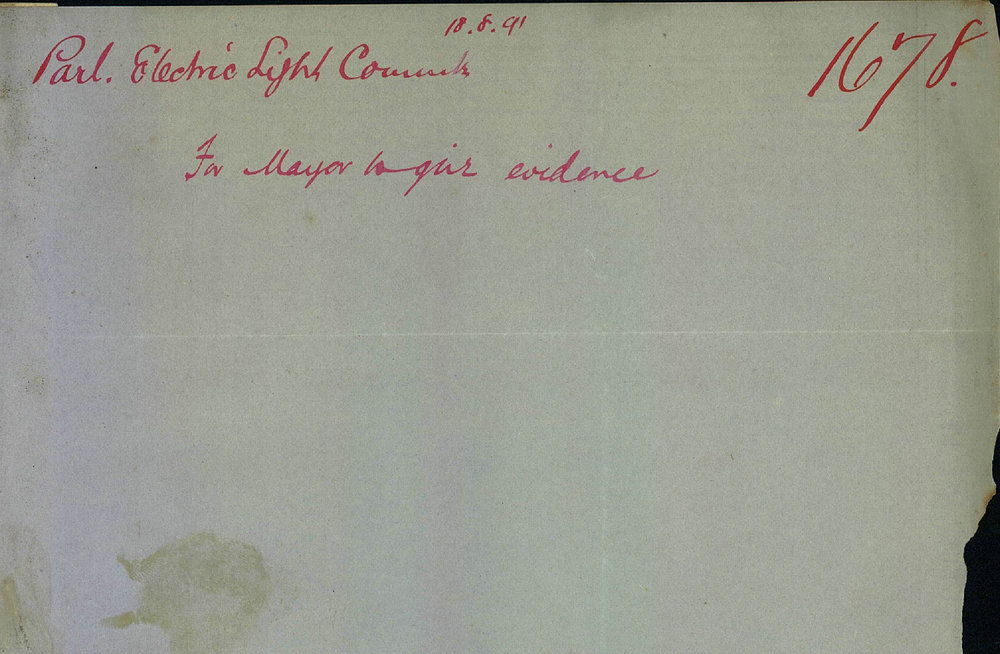 18.8.91
Parl. Electric Light Committe
1678.
For Mayor to give evidence